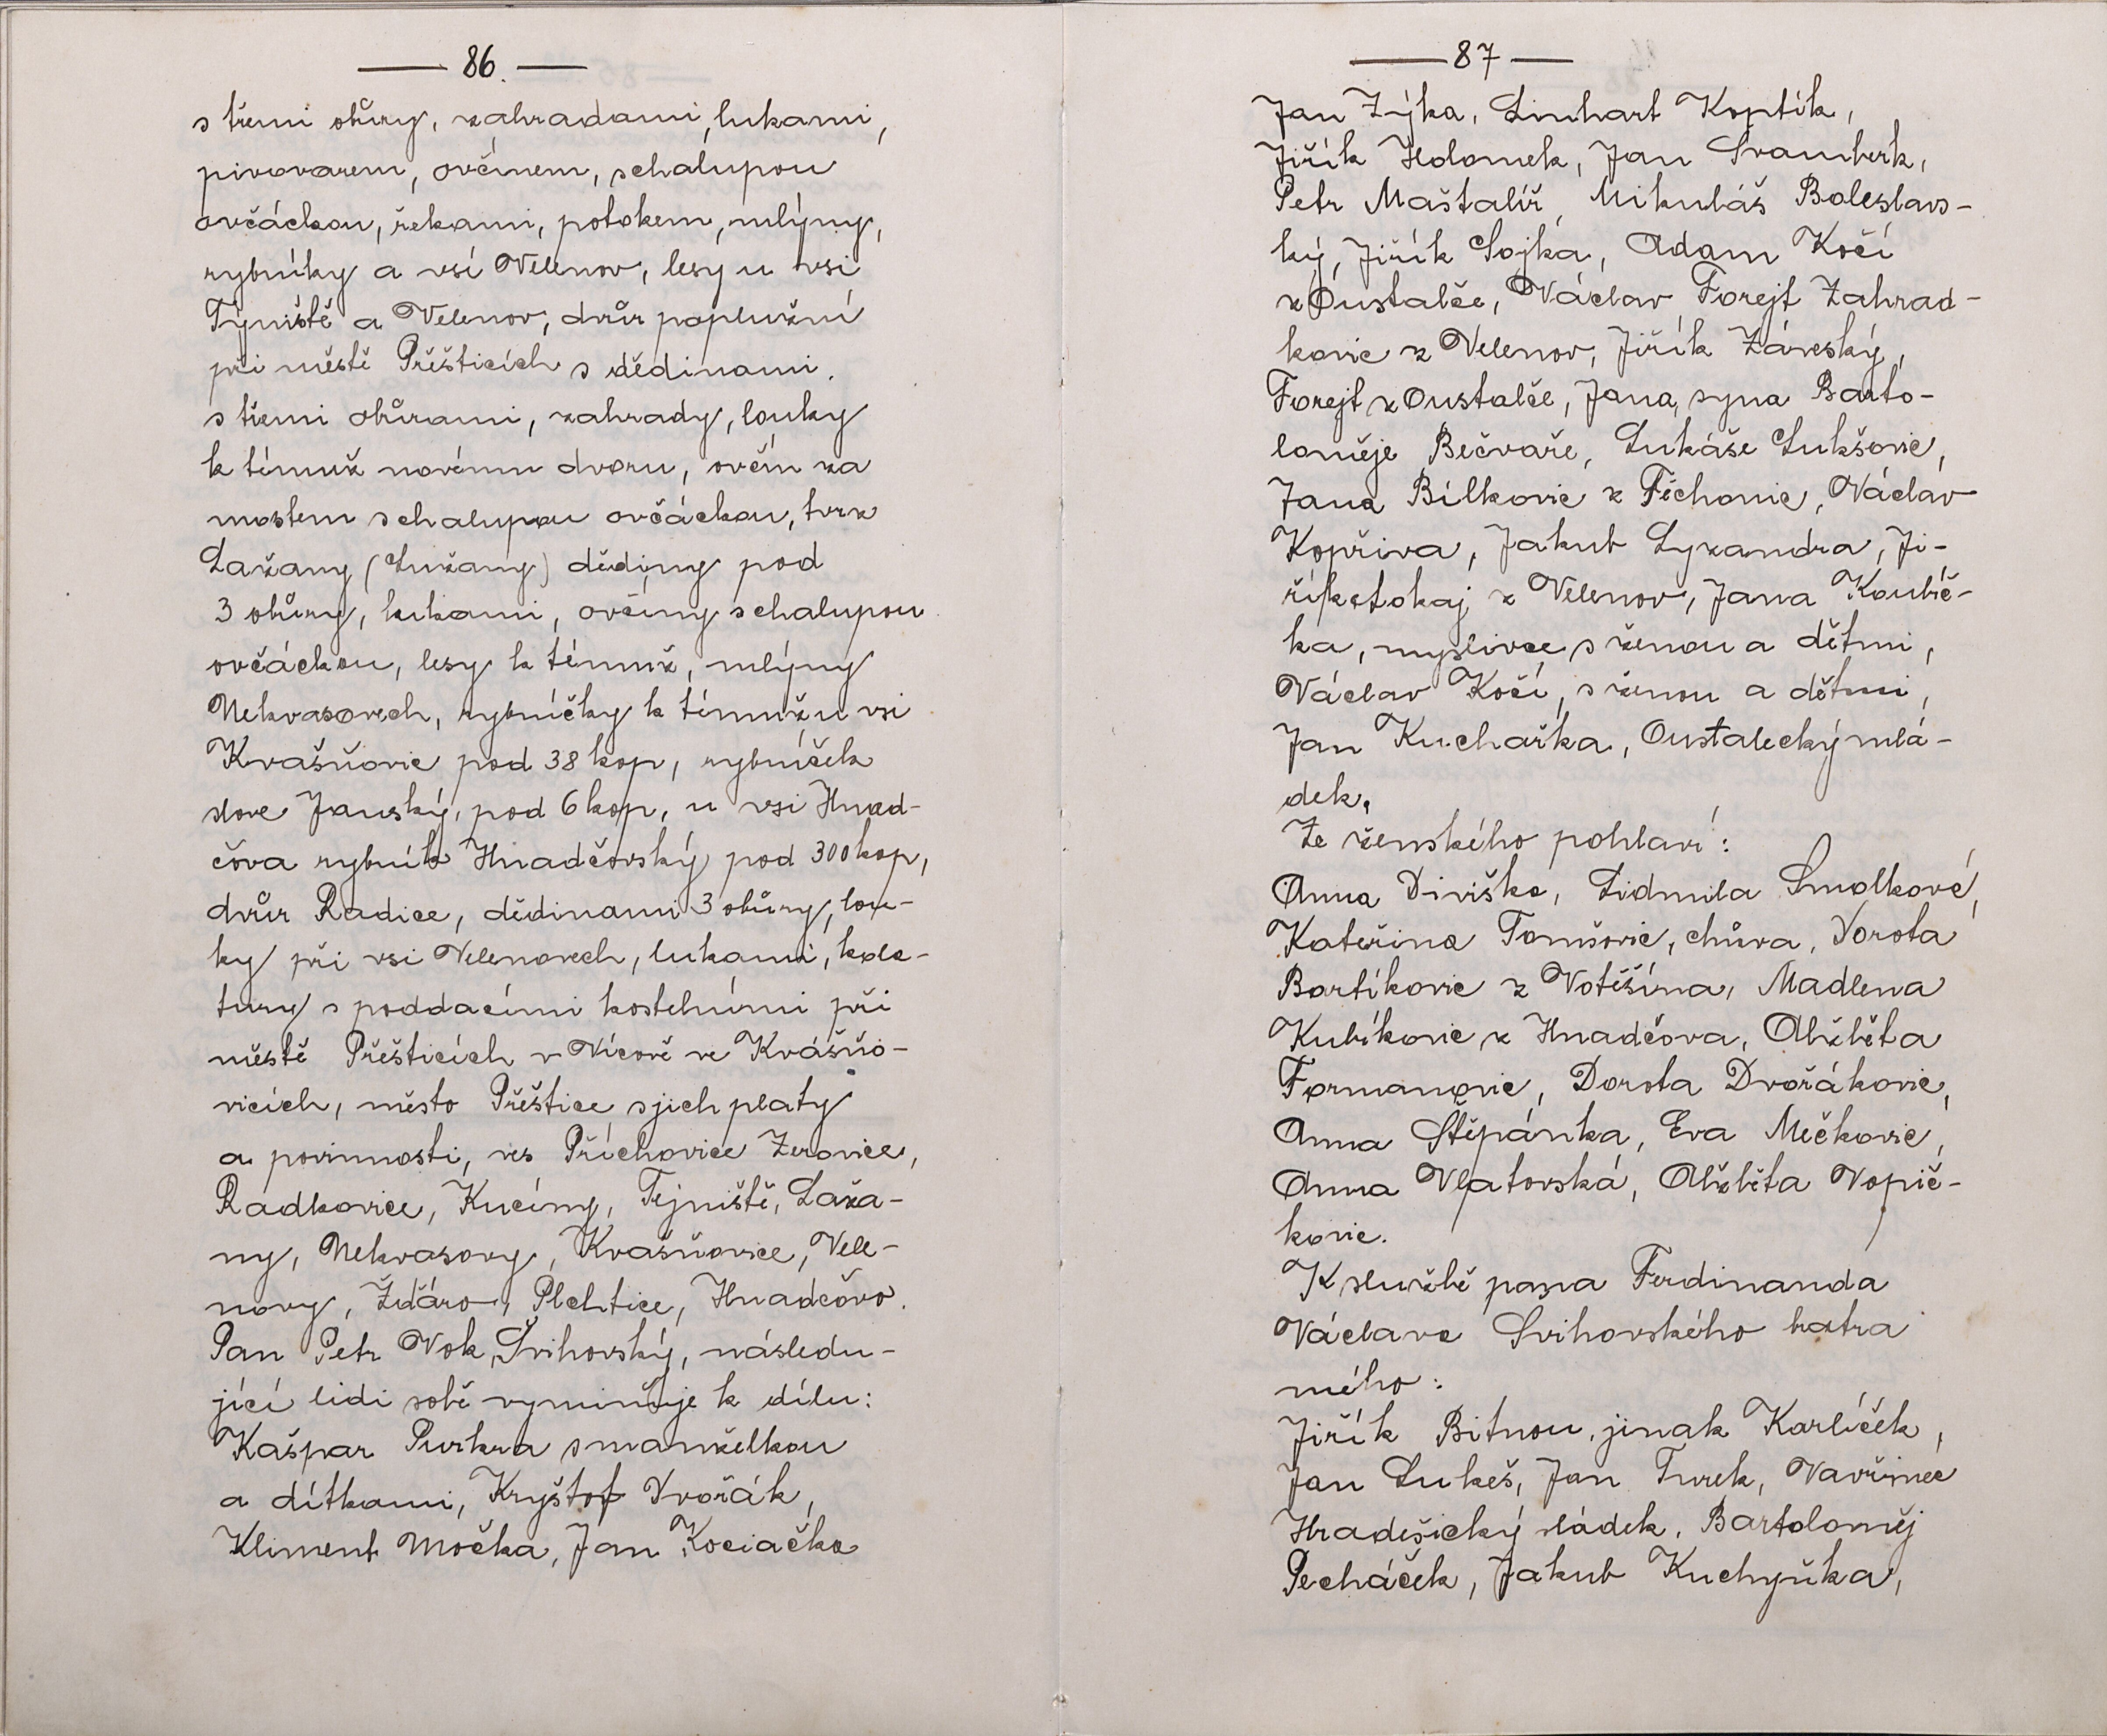 — 86. —
s třemi obůry, zahradami, lukami,
pivovarem, ovčínem, schalupou
ovčáckou, řekami, potokem, mlýny,
rybníky a vsí Velenov, lesy u vsi
Týniště a Velenov, dvůr poplužní
při městě Přešticích s dědinami,
s třemi obůrami, zahrady, louky
k témuž novému dvoru, ovčín za
mostem schalupou ovčáckou, tvrz
Lažany (Lužany) dědiny pod
3 obůry, lukami, ovčíny schalupou
ovčáckou, lesy k témuž, mlýny
Nekvasovech, rybníčky k témuž u vsi
Kvašňovic pod 38 kop, rybníček
slove Janský, pod 6 kop, u vsi Hnad-
čova rybník Hnadčovský pod 300 kop,
dvůr Radice, dědinami 3 obůry, lou-
ky při vsi Velenovech, lukami, kola-
tury s poddacími kostelními při
městě Přešticích v Vícově ve Kvášňo-
vicích, město Přeštice s jich platy
a povinnosti, ves Příchovice Zerovice,
Radkovice, Kucíny, Tejniště, Laža-
ny, Nekvasovy, Kvašňovice, Vele-
novy, Ždáro, Plehtice, Hnadčovo.
Pan Petr Vok, Švihovský, následu-
jící lidi sobě vyminňuje k dílu:
Kašpar Purkra s manželkou
a dítkami, Kryštof Dvořák,
Kliment Močka, Jan Kociačka
— 87 —
Jan Zýka, Linhart Koptík,
Jiřík Holomek, Jan Svamberk,
Petr Maštalíř, Mikuláš Boleslavs-
ký, Jiřík Sojka, Adam Kočí
z Oustalče, Václav Forejt Zahrad-
kovic z Velenov, Jiřík Záveský,
Forejt z Oustalče, Jana, syna Barto-
loměje Bečvaře, Lukáše Lukšovic,
Jana Bílkovic z Těchonic, Václav
Kopřiva, Jakub Lyxandra, Ji-
řík otokaj z Velenov, Jana Koubíč-
ka, myslivce s ženou a dětmi,
Václav Kočí, s ženou a dětmi,
Jan Kuchařka, Oustalecký mlá-
dek.
Ze ženského pohlaví:
Anna Diviška, Lidmila Smolkové,
Kateřina Tomšovic, chůva, Dorota
Bartíkovic z Votěšína, Madlena
Kubíkovic z Hnadčova, Alžběta
Formanovic, Dorota Dvořákovic,
Anna Štěpánka, Eva Mečkovic,
Anna Vlatovská, Alžběta Vopič-
kovic.
K službě pana Ferdinanda
Václava Svihovského bratra
mého:
Jiřík Bitnou, jinak Karlíček,
Jan Lukeš, Jan Turek, Vavřinec
Hradešický sládek, Bartoloměj
Pecháček, Jakub Kuchyňka,